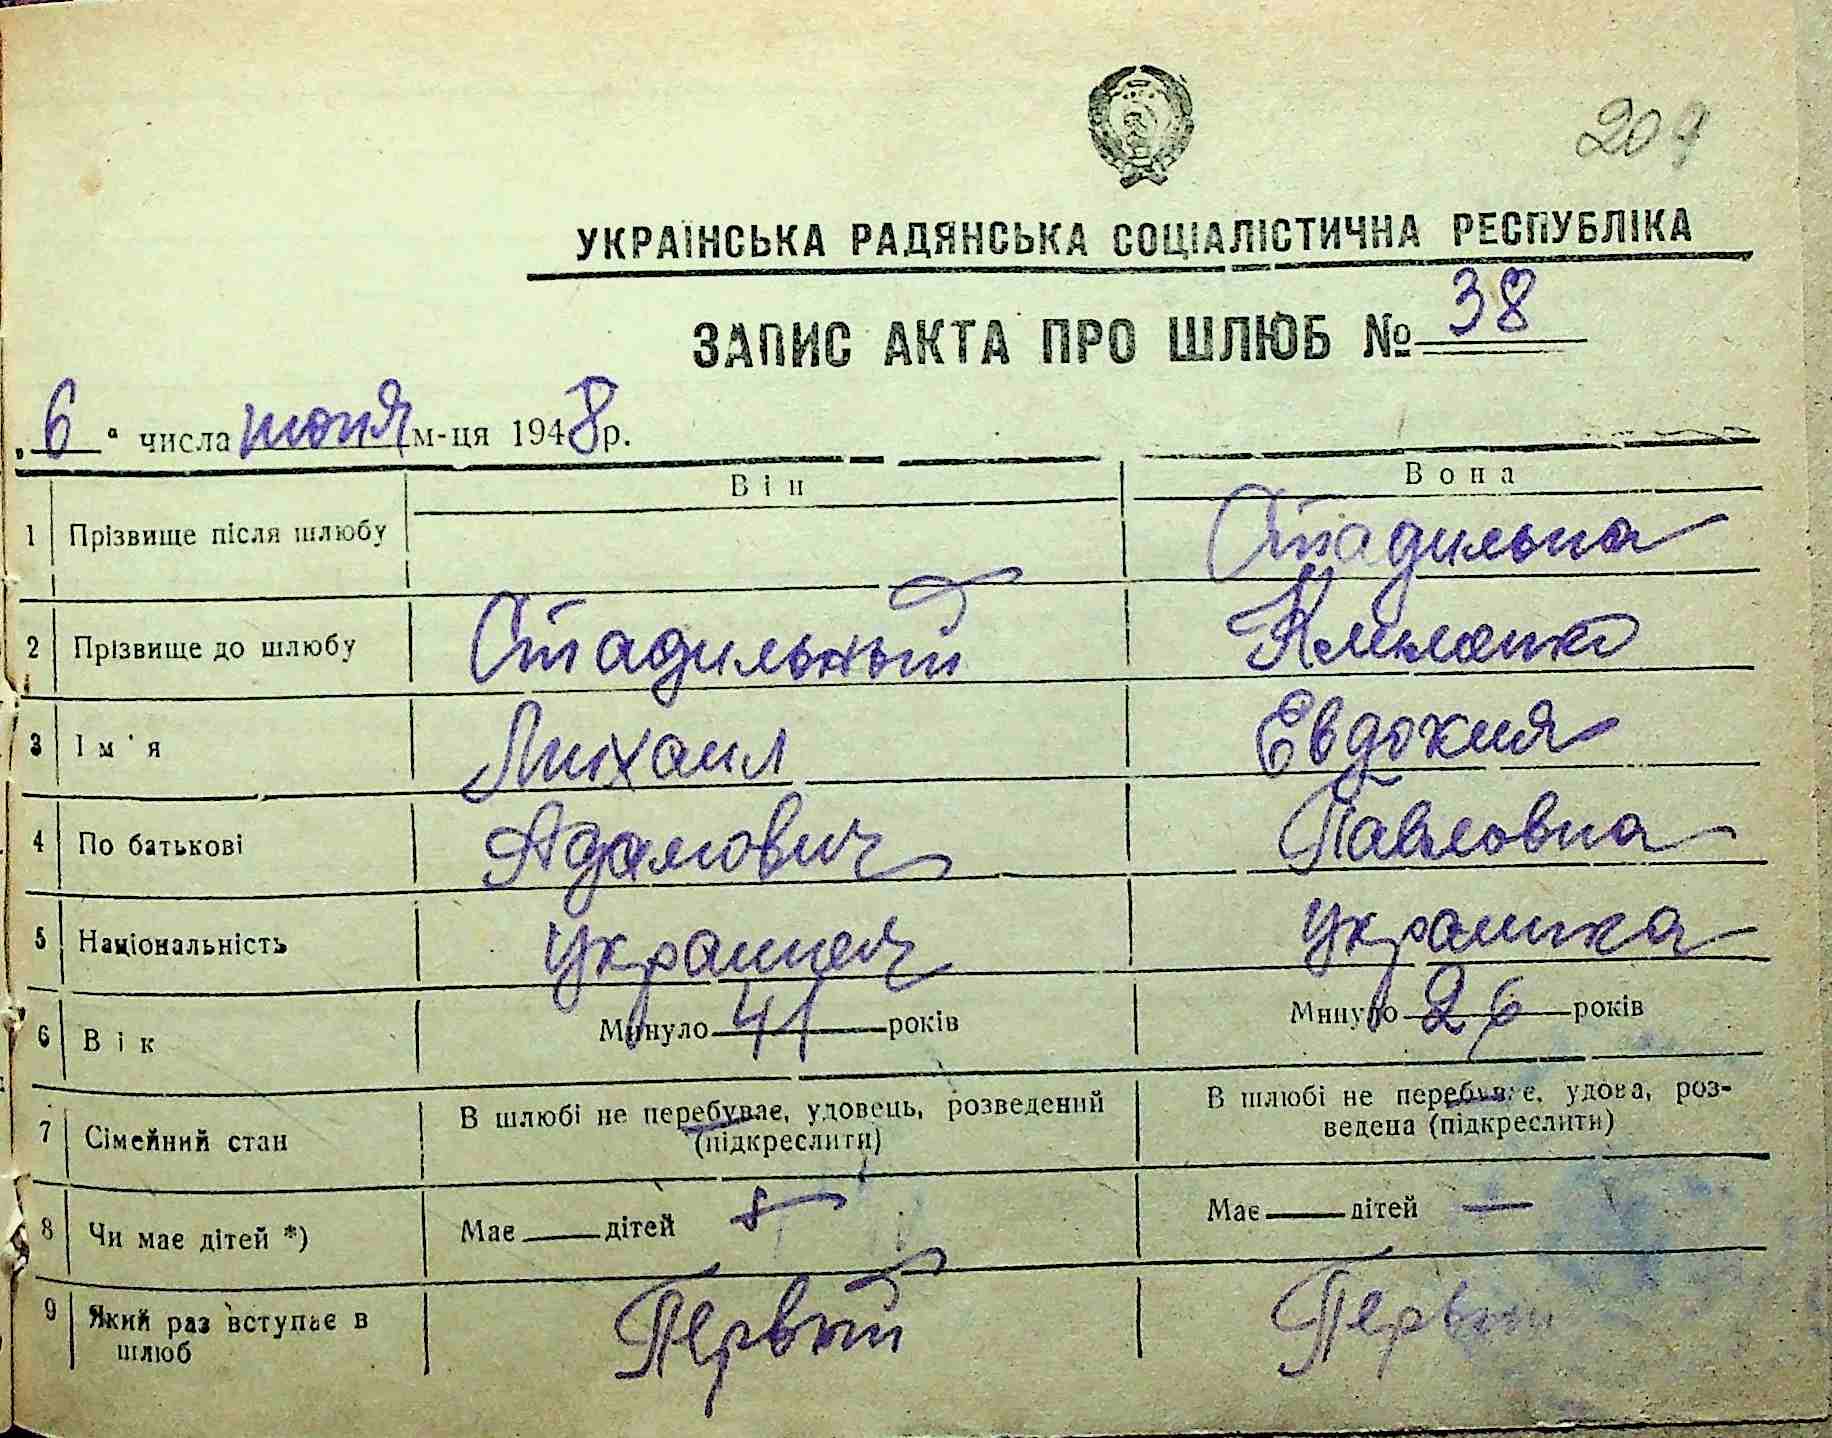 209
УКРАЇНСЬКА РАДЯНСЬКА СОЦІАЛІСТИЧНА РЕСПУБЛІКА
ЗАПИС АКТА ПРО ШЛЮБ № 38
„6“ числа июня м-ця 1948 р.
Він Вона
1 Прізвище після шлюбу Стадильна
2 Прізвище до шлюбу Стадильный
3 Ім'я Михаил Евдокия
4 По батькові Адамович Павловна
5 Національність украинец украинка
6 Вік Минуло 41 років Минуло 26 років
7 Сімейний стан В шлюбі не перебуває, удовець, розведений (підкреслити) В шлюбі не перебуває, удова, роз-
ведена (підкреслити)
8 Чи має дітей *) Має — дітей Має — дітей —
9 Який раз вступає в шлюб Первый Первый